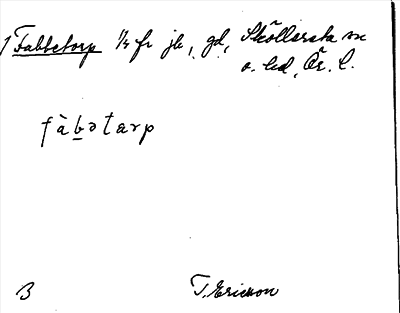 Fabbetorp 1/4 fr jb, gd, Sköllersta sn
o. hd, Ör. l.
fàbətarp
B T. Ericsson